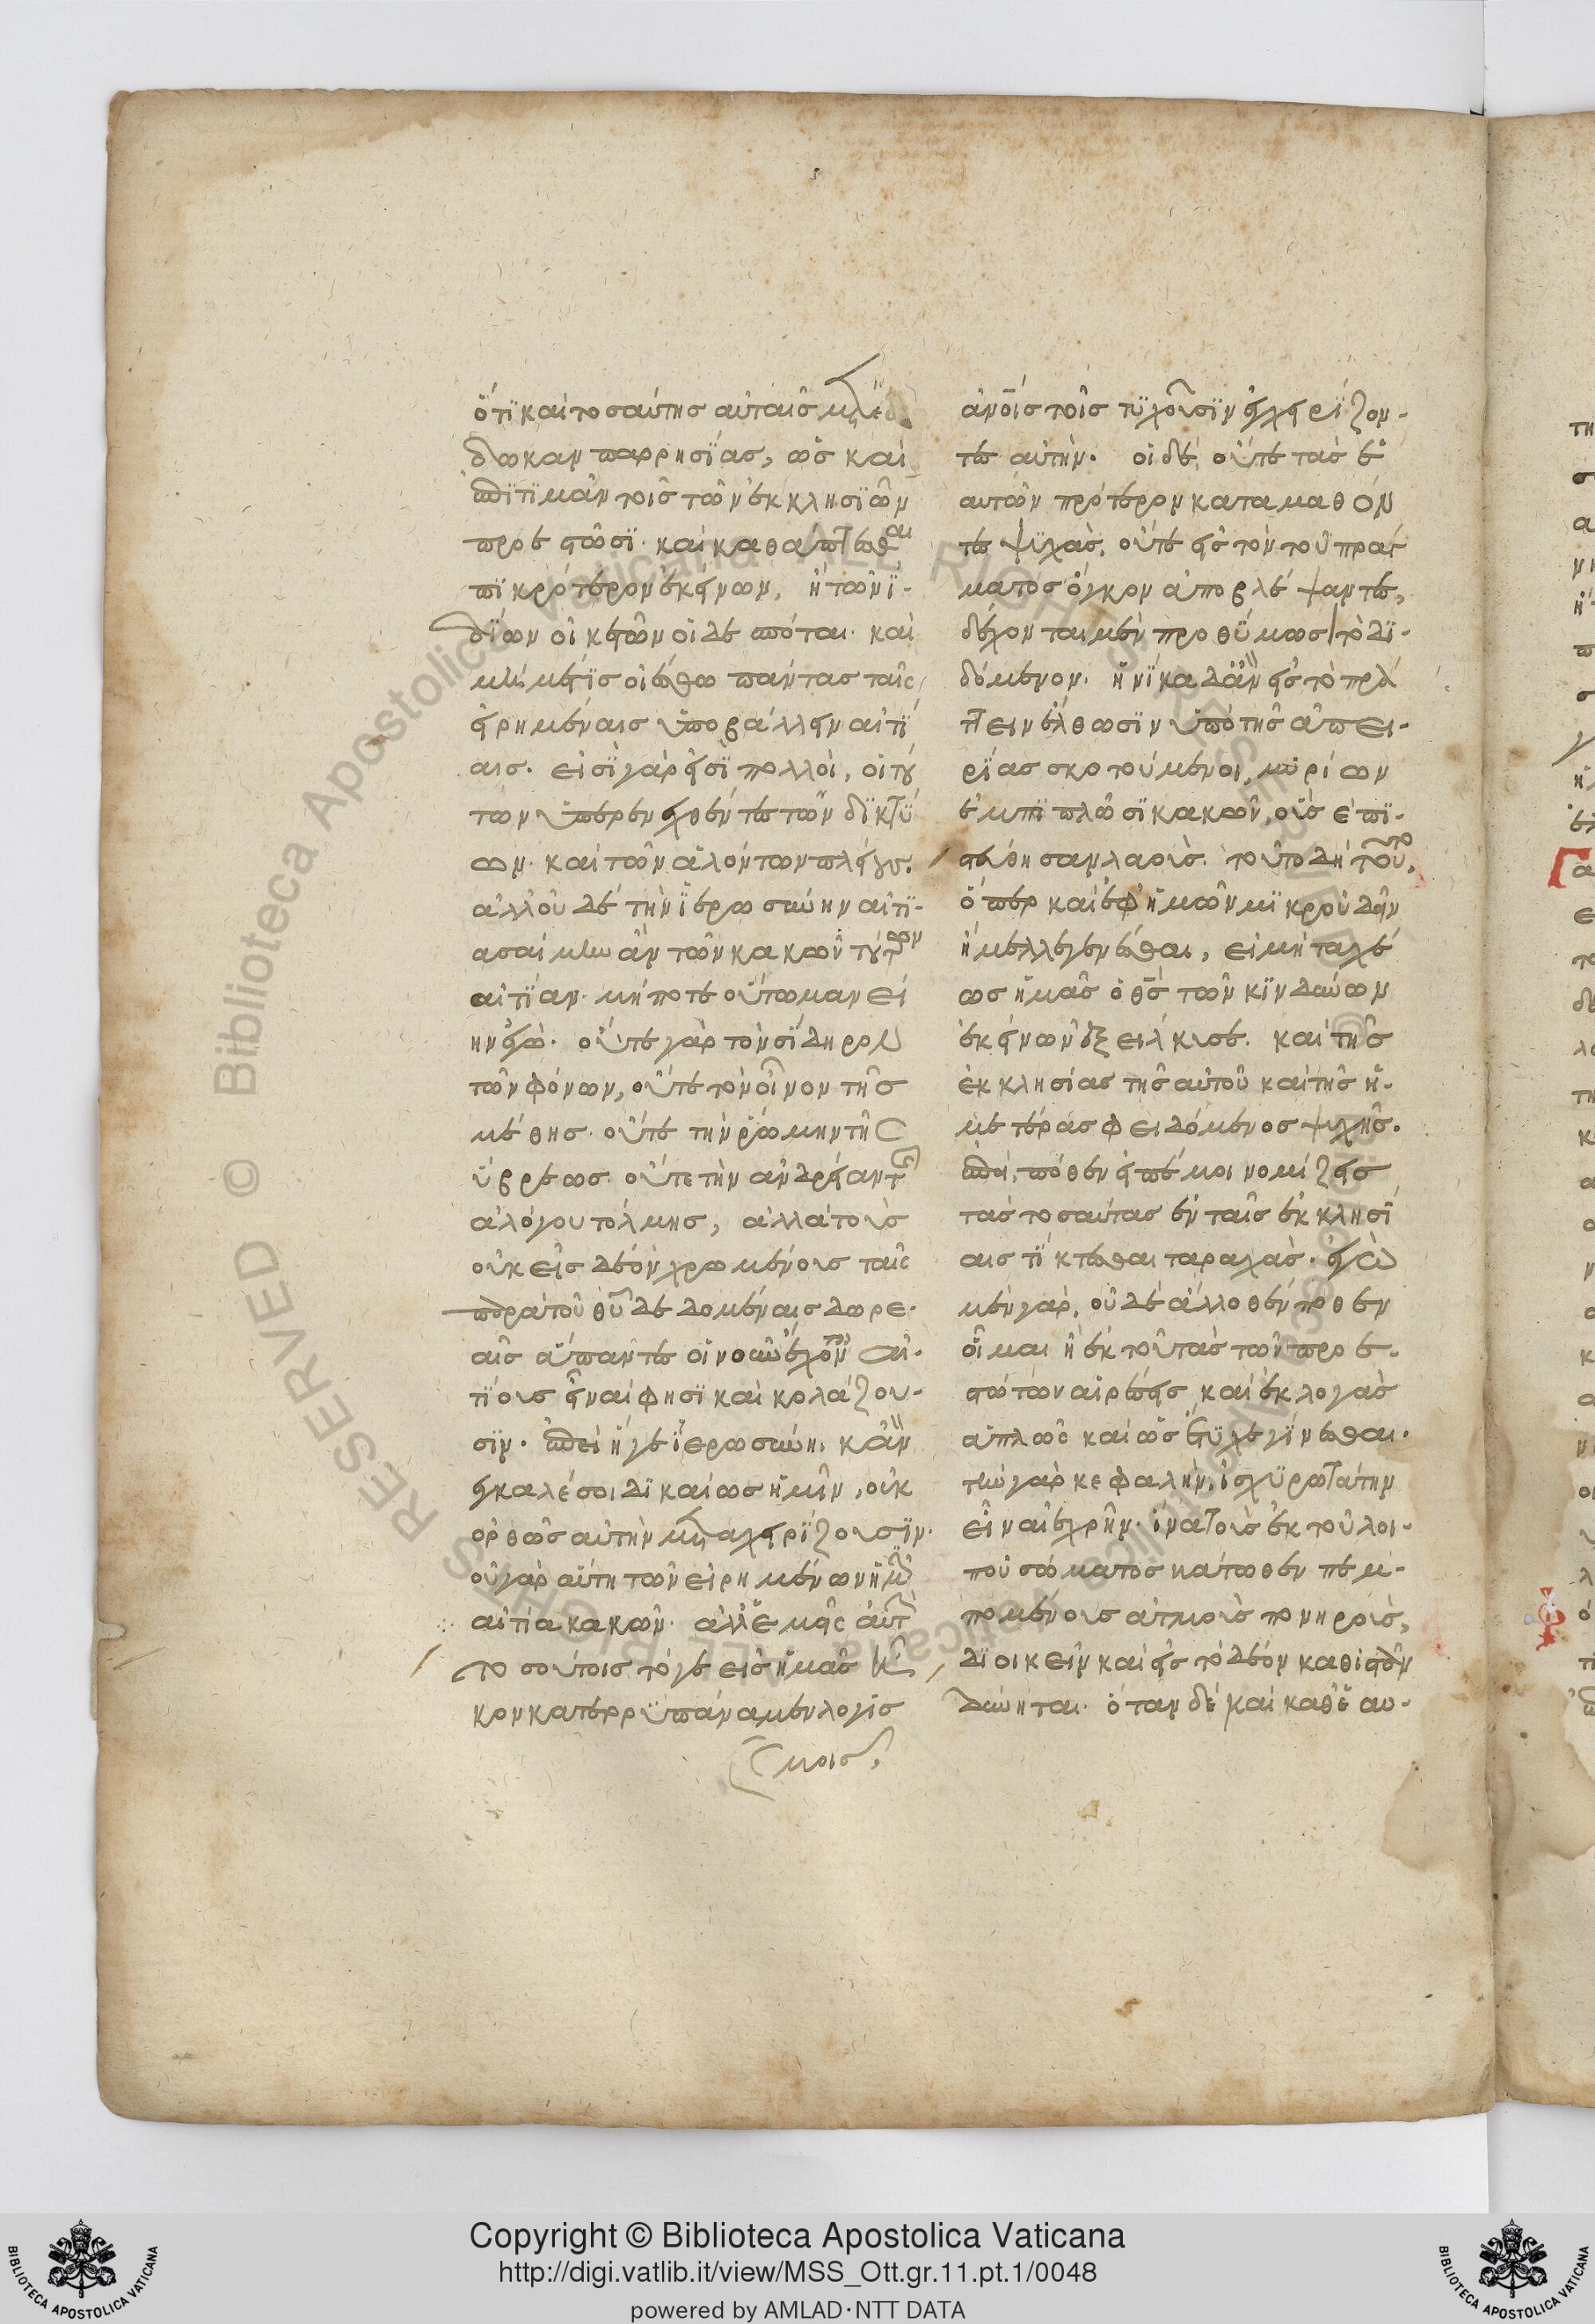 ὅτι καὶ τοσαύτης αὐταῖς μετέ
δωκαν παρρησίας, ὡς καὶ
ἐπιτιμᾶν τοῖς τῶν ἐκκλησιῶν
προεστῶσι· καὶ καθάπτεσθαι
πικρότερον ἐκείνων, ἢ τῶν ἰ-
δίων οἰκετῶν οἱ δεσπόται· καὶ
μή μέ τις οἰέσθω πάντας ταῖς
εἰρημέναις ὑποβάλλειν αἰτί
αις. εἰσὶ γὰρ εἰσὶ πολλοὶ, οἱ τού
των ὑπερενεχθέντες τῶν δικτύ
ων· καὶ τῶν ἁλόντων πλείους.
ἀλλ' οὐδὲ τὴν ἱερωσύνην αἰτι-
ασαίμην ἂν τῶν κακῶν τούτων
αἰτίαν· μήποτε οὕτω μανεί
ην ἐγώ. οὔτε γὰρ τὸν σίδηρον
τῶν φόνων, οὔτε τὸν οἶνον τῆς
μέθης· οὔτε τὴν ῥώμην τῆς
ὕβρεως· οὔτε τὴν ἀνδρείαν τῆς
ἀλόγου τόλμης, ἀλλὰ τοὺς
οὐκ εἰς δέον χρωμένους ταῖς
παρὰ τοῦ θυ δεδομέναις δωρε-
αῖς ἅπαντες οἱ νοῦν ἔχοντες αἰ-
τίους εἶναί φησι καὶ κολάζου-
σιν. ἐπεὶ ἥγε ἱερωσύνη, κἂν
ἐγκαλέσοι δικαίως ἡμῖν, οὐκ
ὀρθῶς αὐτὴν μεταχειρίζουσιν.
οὐ γὰρ αὕτη τῶν εἰρημένων ἡμῖν
αἰτία κακῶν. ἀλλ' ἡμεῖς αὐτὴν
τοσούτοις τό γε εἰς ἡμᾶς ἧ
κον κατερρυπάναμεν λογισ
μοις,
ἀνοις τοῖς τυχοῦσιν ἐγχειρίζον-
τες αὐτήν. οἱ δὲ, οὔτε τὰς ἑ
αυτῶν πρότερον καταμαθόν
τες ψυχὰς, οὔτε εἰς τὸν τοῦ πράγ
ματος ὄγκον ἀποβλέψαντες,
δέχονται μὲν προθύμως τὸ δι-
δόμενον. ἡνίκα δ' ἂν εἰς τὸ πρά
ττειν ἔλθωσιν ὑπὸ τῆς ἀπει-
ρίας σκοτούμενοι, μυρίων
ἐμπιπλῶσι κακῶν, οὓς ἐπι-
στεύθησαν λαούς. τοῦτο δὴ τοῦτο,
ὅπερ καὶ ἐφ' ἡμῶν μικροῦ δεῖν
ἤμελλε γενέσθαι, εἰ μὴ ταχέ
ως ἡμᾶς ὁ θς τῶν κινδύνων
ἐκείνων ἐξείλκυσε. καὶ τῆς
ἐκκλησίας τῆς αὐτοῦ καὶ τῆς ἡ-
μετέρας φειδόμενος ψυχῆς.
ἐπεὶ, πόθεν εἰπέ μοι νομίζεις
τὰς τοσαύτας ἐν ταῖς ἐκκλησί
αις τίκτεσθαι ταραχάς. ἐγὼ
μὲν γὰρ, οὐδὲ ἄλλοθέν ποθεν
οἶμαι ἢ ἐκ τοῦ τὰς τῶν προε-
στώτων αἱρέσεις, καὶ ἐκλογὰς
ἁπλῶς καὶ ὡς ἔτυχε γίνεσθαι.
τὴν γὰρ κεφαλὴν, ἰσχυροτάτην
εἶναι ἐχρῆν· ἵνα τοὺς ἐκ τοῦ λοι-
ποῦ σώματος κάτωθεν πεμ-
πομένους ἀτμοὺς πονηροὺς,
διοικεῖν καὶ εἰς τὸ δέον καθιστᾶν
δύνηται. ὅταν δὲ καὶ καθ' ἑαυ-
Copyright © Biblioteca Apostolica Vaticana
http://digi.vatlib.it/view/MSS_Ott.gr.11.pt.1/0048
powered by AMLAD·NTT DATA